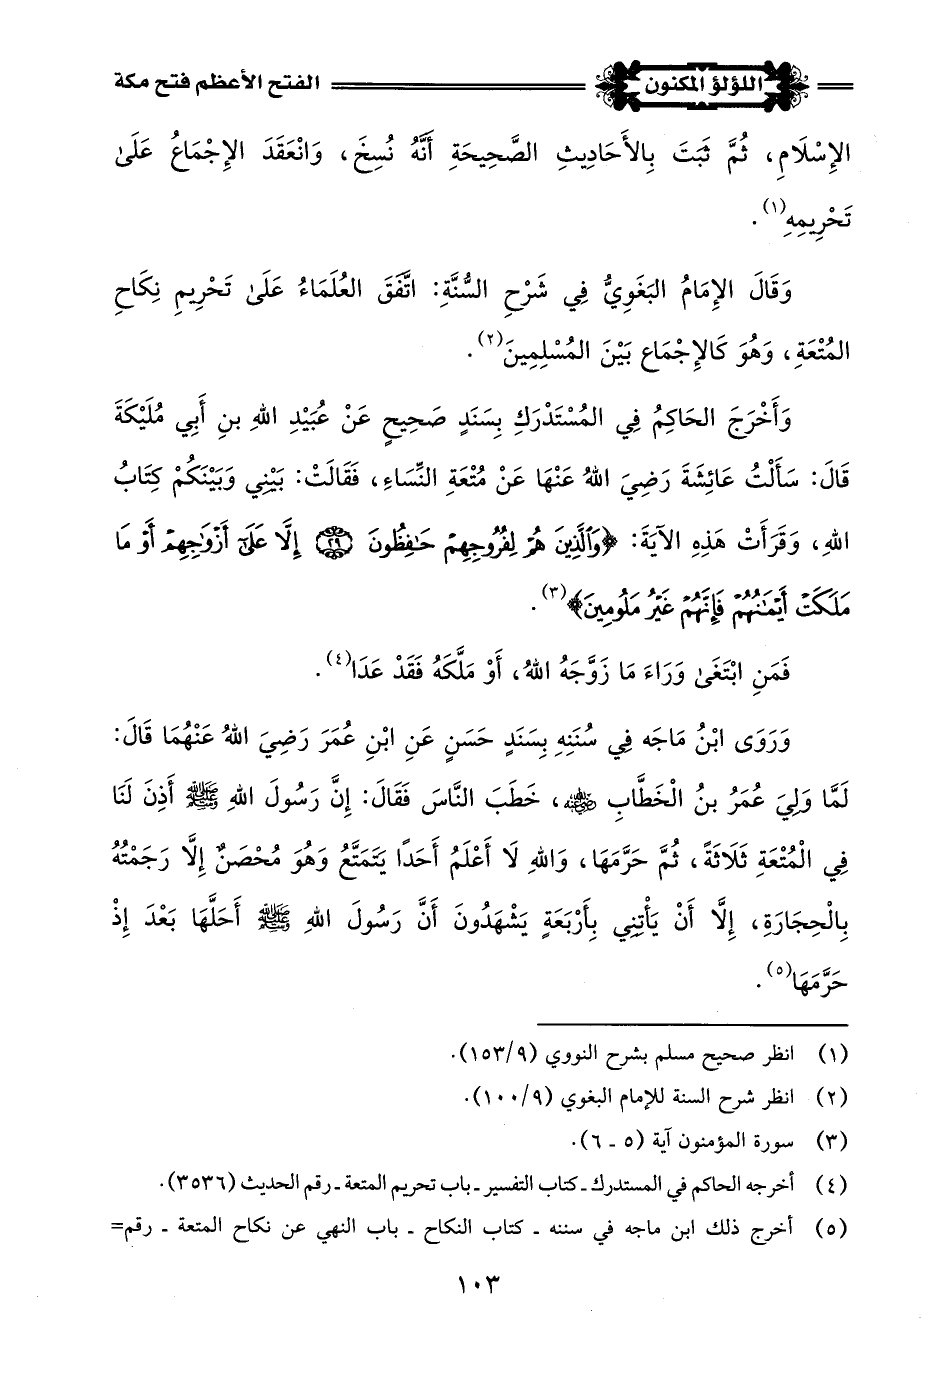 اللؤلؤ المكنون الفتح الأعظم فتح مكة
الإِسْلَامِ، ثُمَّ ثَبَتَ بِالأَحَادِيثِ الصَّحِيحَةِ أَنَّهُ نُسِخَ، وَانْعَقَدَ الإِجْمَاعُ عَلَىٰ
تَحْرِيمِهِ(١).
وَقَالَ الإِمَامُ البَغَوِيُّ فِي شَرْحِ السُّنَّةِ: اتَّفَقَ العُلَمَاءُ عَلَىٰ تَحْرِيمِ نِكَاحِ
المُتْعَةِ، وَهُوَ كَالإِجْمَاعِ بَيْنَ المُسْلِمِينَ(٢).
وَأَخْرَجَ الحَاكِمُ فِي المُسْتَدْرَكِ بِسَنَدٍ صَحِيحٍ عَنْ عُبَيْدِ اللهِ بنِ أَبِي مُلَيْكَةَ
قَالَ: سَأَلْتُ عَائِشَةَ رَضِيَ اللهُ عَنْهَا عَنْ مُتْعَةِ النِّسَاءِ، فَقَالَتْ: بَيْنِي وَبَيْنَكُمْ كِتَابُ
اللهِ، وَقَرَأَتْ هَذِهِ الآيَةَ: ﴿وَٱلَّذِينَ هُمْ لِفُرُوجِهِمْ حَٰفِظُونَ ٢٩ إِلَّا عَلَىٰٓ أَزْوَٰجِهِمْ أَوْ مَا
مَلَكَتْ أَيْمَٰنُهُمْ فَإِنَّهُمْ غَيْرُ مَلُومِينَ﴾(٣).
فَمَنِ ابْتَغَىٰ وَرَاءَ مَا زَوَّجَهُ اللهُ، أَوْ مَلَّكَهُ فَقَدْ عَدَا(٤).
وَرَوَى ابْنُ مَاجَه فِي سُنَنِهِ بِسَنَدٍ حَسَنٍ عَنِ ابْنِ عُمَرَ رَضِيَ اللهُ عَنْهُمَا قَالَ:
لَمَّا وَلِيَ عُمَرُ بنُ الْخَطَّابِ رضي الله عنه، خَطَبَ النَّاسَ فَقَالَ: إِنَّ رَسُولَ اللهِ ﷺ أَذِنَ لَنَا
فِي الْمُتْعَةِ ثَلَاثَةً، ثُمَّ حَرَّمَهَا، وَاللهِ لَا أَعْلَمُ أَحَدًا يَتَمَتَّعُ وَهُوَ مُحْصَنٌ إِلَّا رَجَمْتُهُ
بِالْحِجَارَةِ، إِلَّا أَنْ يَأْتِنِي بِأَرْبَعَةٍ يَشْهَدُونَ أَنَّ رَسُولَ اللهِ ﷺ أَحَلَّهَا بَعْدَ إِذْ
حَرَّمَهَا(٥).
(١) انظر صحيح مسلم بشرح النووي (١٥٣/٩).
(٢) انظر شرح السنة للإمام البغوي (١٠٠/٩).
(٣) سورة المؤمنون آية (٥ ـ ٦).
(٤) أخرجه الحاكم في المستدرك ـ كتاب التفسير ـ باب تحريم المتعة ـ رقم الحديث (٣٥٣٦).
(٥) أخرج ذلك ابن ماجه في سننه ـ كتاب النكاح ـ باب النهي عن نكاح المتعة ـ رقم=
١٠٣